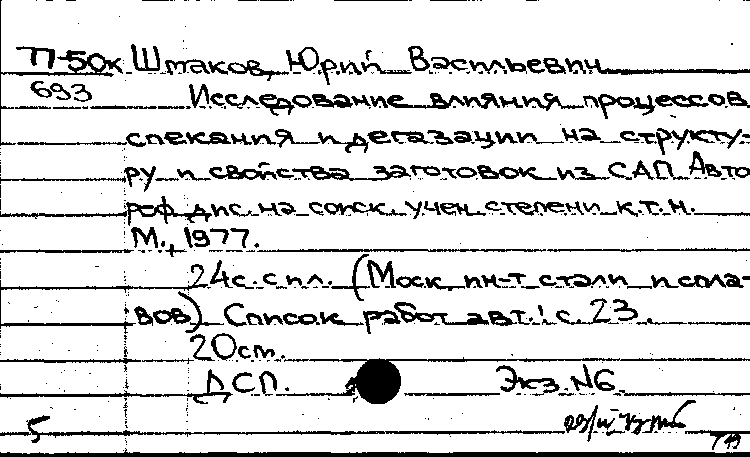 П-50к Штаков, Юрий Васильевич
693 Исследование влияния процессов
спекания и дегазации на структу-
ру и свойства заготовок из САП Авто
реф дис. на соиск. учен. степени к.т.н.
М., 1977.
24с. с ил. (Моск. ин-т стали и спла-
вов) Список работ авт.: с. 23.
20см.
ДСП. Экз. №6
5